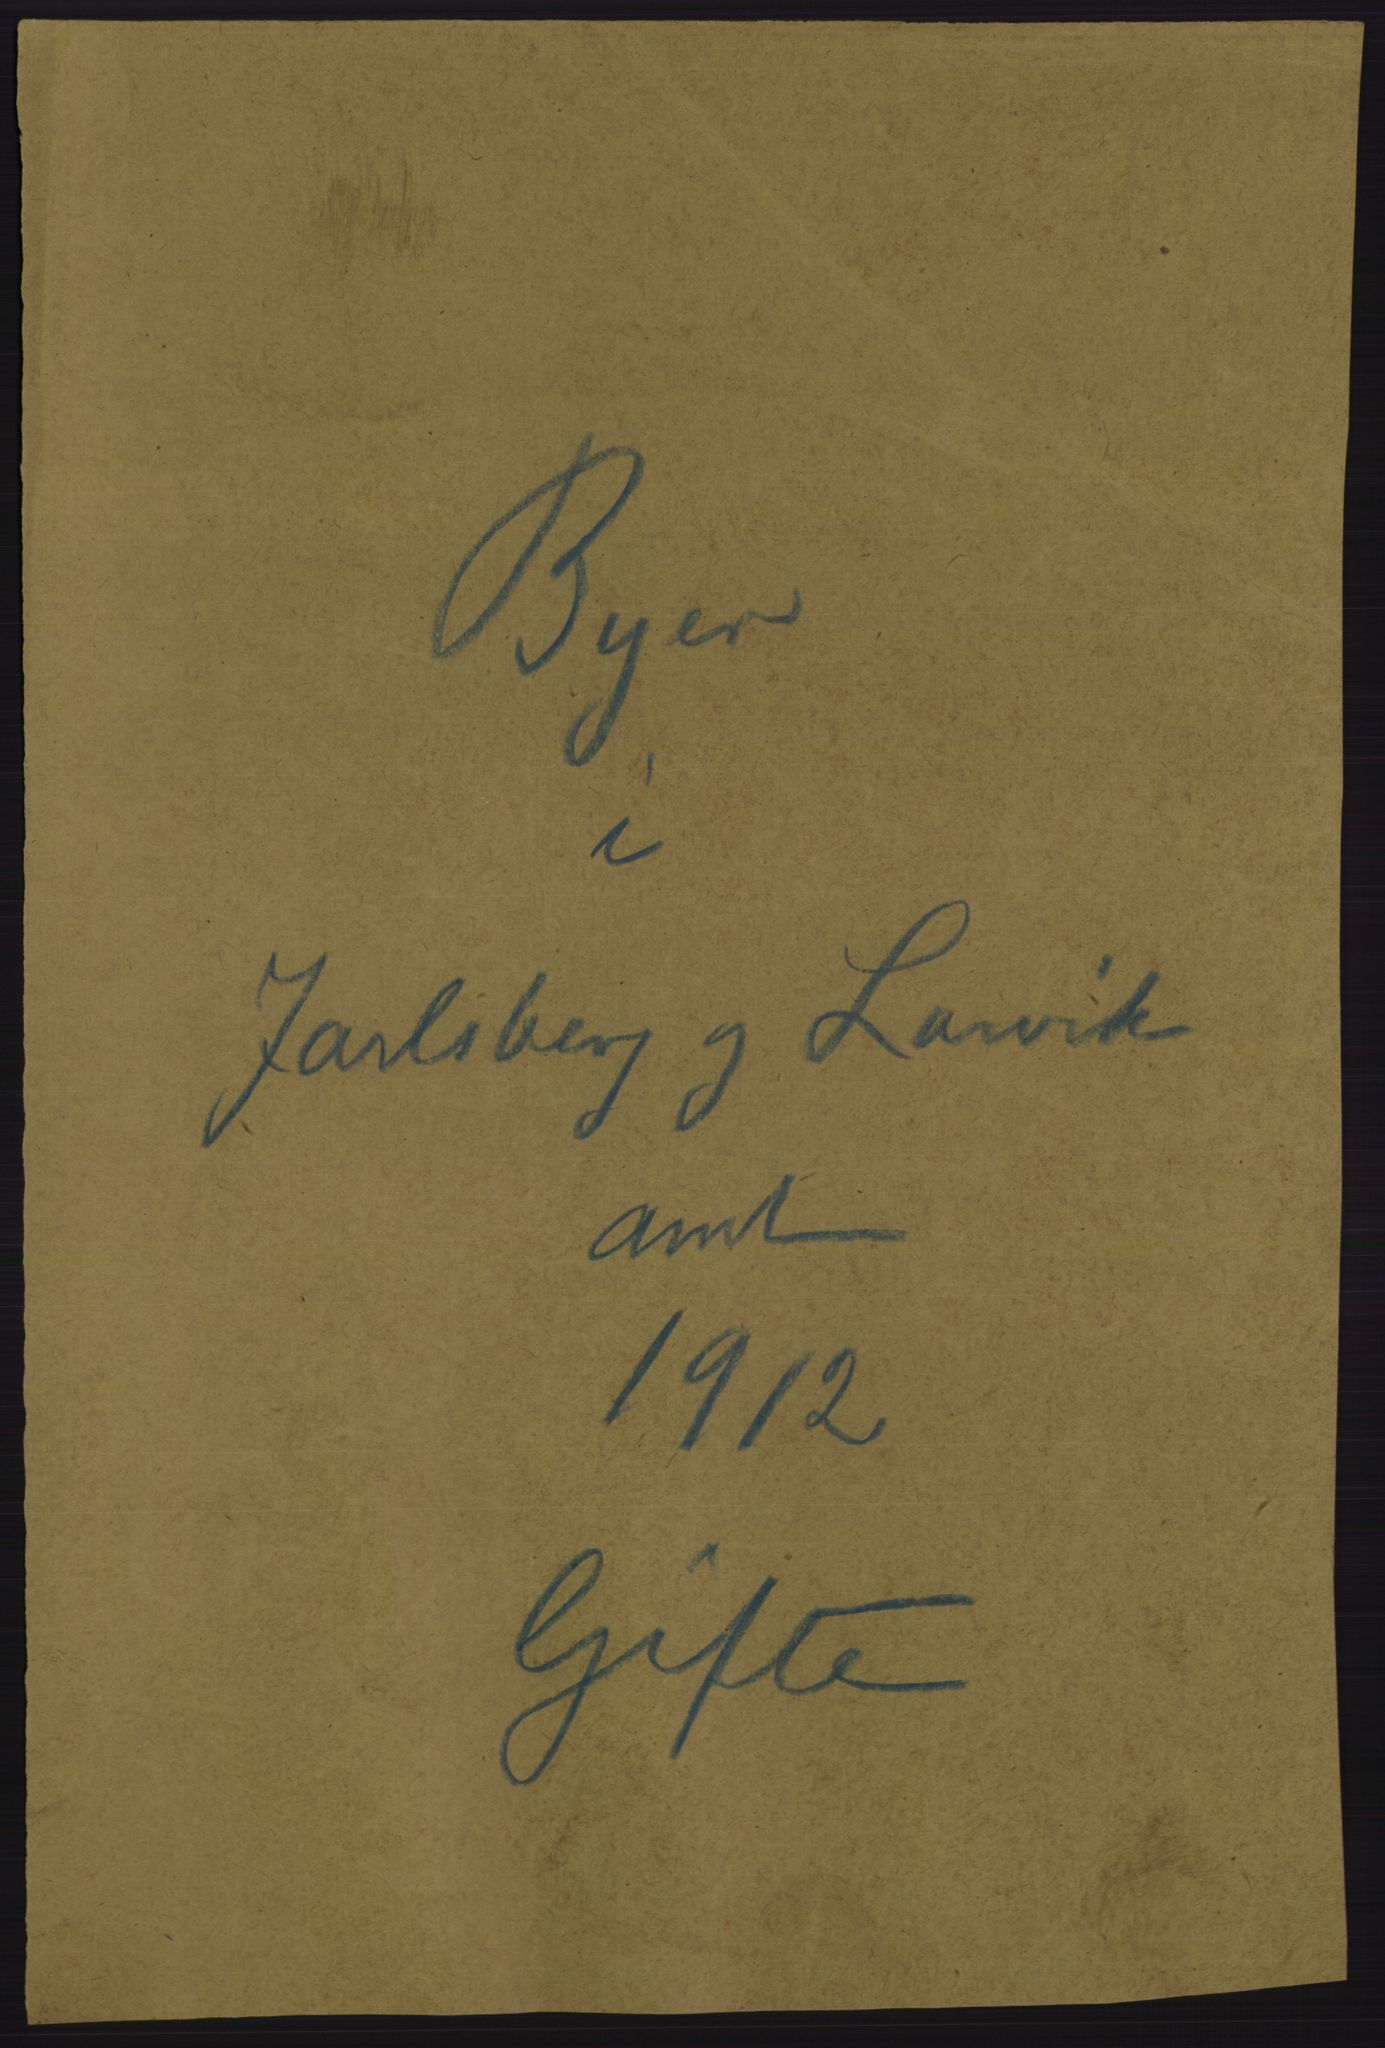 Byer
i
Jarlsberg og Larvik
amt
1912
Gifte